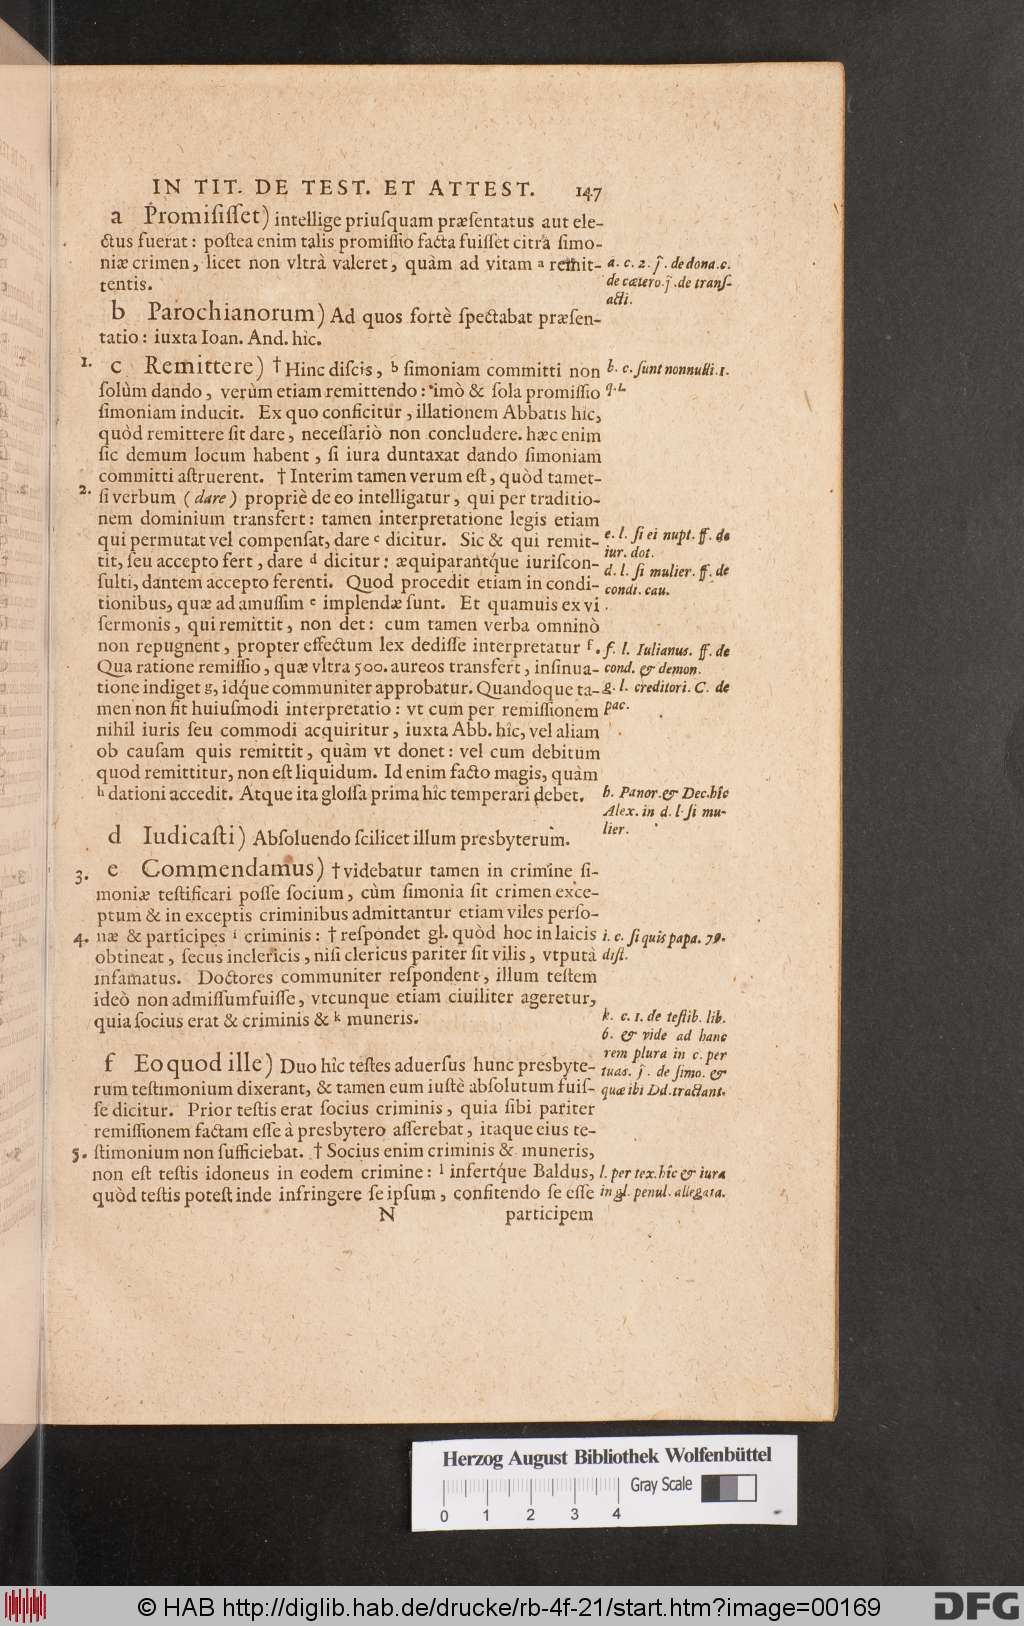 IN TIT. DE TEST. ET ATTEST. 147
a Promiſiſſet) intellige priuſquam præſentatus aut ele-
ctus fuerat: poſtea enim talis promiſſio facta fuiſſet citrà ſimo-
niæ crimen, licet non vltrà valeret, quàm ad vitam a remit-
tentis.
a. c. 2. j. de dona. c.
de cætero. j. de tranſ-
acti.
b Parochianorum) Ad quos fortè ſpectabat præſen-
tatio: iuxta Ioan. And. hîc.
1. c Remittere) † Hinc diſcis, b ſimoniam committi non
ſolùm dando, verùm etiam remittendo: imò & ſola promiſſio
ſimoniam inducit. Ex quo conficitur, illationem Abbatis hîc,
quòd remittere ſit dare, neceſſariò non concludere. hæc enim
ſic demum locum habent, ſi iura duntaxat dando ſimoniam
committi aſtruerent. † Interim tamen verum eſt, quòd tamet-
2. ſi verbum (dare) propriè de eo intelligatur, qui per traditio-
nem dominium transfert: tamen interpretatione legis etiam
qui permutat vel compenſat, dare c dicitur. Sic & qui remit-
tit, ſeu accepto fert, dare d dicitur: æquiparantq́ue iuriſcon-
ſulti, dantem accepto ferenti. Quod procedit etiam in condi-
tionibus, quæ ad amuſſim e implendæ ſunt. Et quamuis ex vi
ſermonis, qui remittit, non det: cum tamen verba omninò
non repugnent, propter effectum lex dediſſe interpretatur f.
Qua ratione remiſſio, quæ vltra 500. aureos transfert, inſinua-
tione indiget g, idq́ue communiter approbatur. Quandoque ta-
men non fit huiuſmodi interpretatio: vt cum per remiſſionem
nihil iuris ſeu commodi acquiritur, iuxta Abb. hîc, vel aliam
ob cauſam quis remittit, quàm vt donet: vel cum debitum
quod remittitur, non eſt liquidum. Id enim facto magis, quàm
h dationi accedit. Atque ita gloſſa prima hîc temperari debet.
b. c. ſunt nonnulli. 1.
q. 1.
e. l. ſi ei nupt. ff. de
iur. dot.
d. l. ſi mulier. ff. de
condi. cau.
f. l. Iulianus. ff. de
cond. & demon.
g. l. creditori. C. de
pac.
h. Panor. & Dec. hîc
Alex. in d. l. ſi mu-
lier.
d Iudicaſti) Abſoluendo ſcilicet illum presbyterum.
3. e Commendamus) † videbatur tamen in crimine ſi-
moniæ teſtificari poſſe ſocium, cùm ſimonia ſit crimen exce-
ptum & in exceptis criminibus admittantur etiam viles perſo-
4. næ & participes i criminis: † reſpondet gl. quòd hoc in laicis
obtineat, ſecus in clericis, niſi clericus pariter ſit vilis, vtputà
infamatus. Doctores communiter reſpondent, illum teſtem
ideò non admiſſum fuiſſe, vtcunque etiam ciuiliter ageretur,
quia ſocius erat & criminis & k muneris.
i. c. ſi quis papa. 79.
diſt.
k. c. 1. de teſtib. lib.
6. & vide ad hanc
rem plura in c. per
tuas. j. de ſimo. &
quæ ibi Dd. tractant.
f Eo quod ille) Duo hîc teſtes aduerſus hunc presbyte-
rum teſtimonium dixerant, & tamen eum iuſtè abſolutum fuiſ-
ſe dicitur. Prior teſtis erat ſocius criminis, quia ſibi pariter
remiſſionem factam eſſe à presbytero aſſerebat, itaque eius te-
5. ſtimonium non ſufficiebat. † Socius enim criminis & muneris,
non eſt teſtis idoneus in eodem crimine: l infertq́ue Baldus,
quòd teſtis poteſt inde infringere ſe ipſum, confitendo ſe eſſe
l. per tex. hîc & iura
in gl. penul. allegata.
N participem
Herzog August Bibliothek Wolfenbüttel
Gray Scale
0 1 2 3 4
© HAB http://diglib.hab.de/drucke/rb-4f-21/start.htm?image=00169
DFG